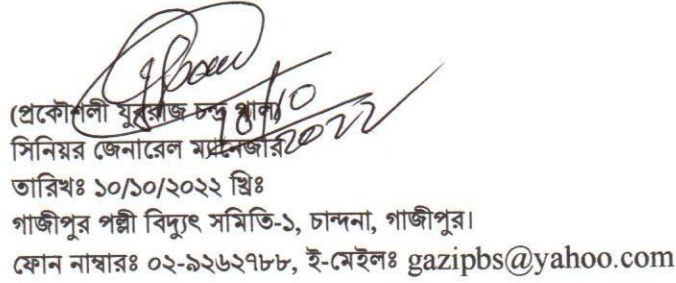 (প্রকৌশলী যুবরাজ চন্দ্র পাল)
১০/১০/2022
সিনিয়র জেনারেল ম্যানেজার
তারিখঃ ১০/১০/২০২২ খ্রিঃ
গাজীপুর পল্লী বিদ্যুৎ সমিতি-১, চান্দনা, গাজীপুর।
ফোন নাম্বারঃ ০২-৯২৬২৭৮৮, ই-মেইলঃ gazipbs@yahoo.com